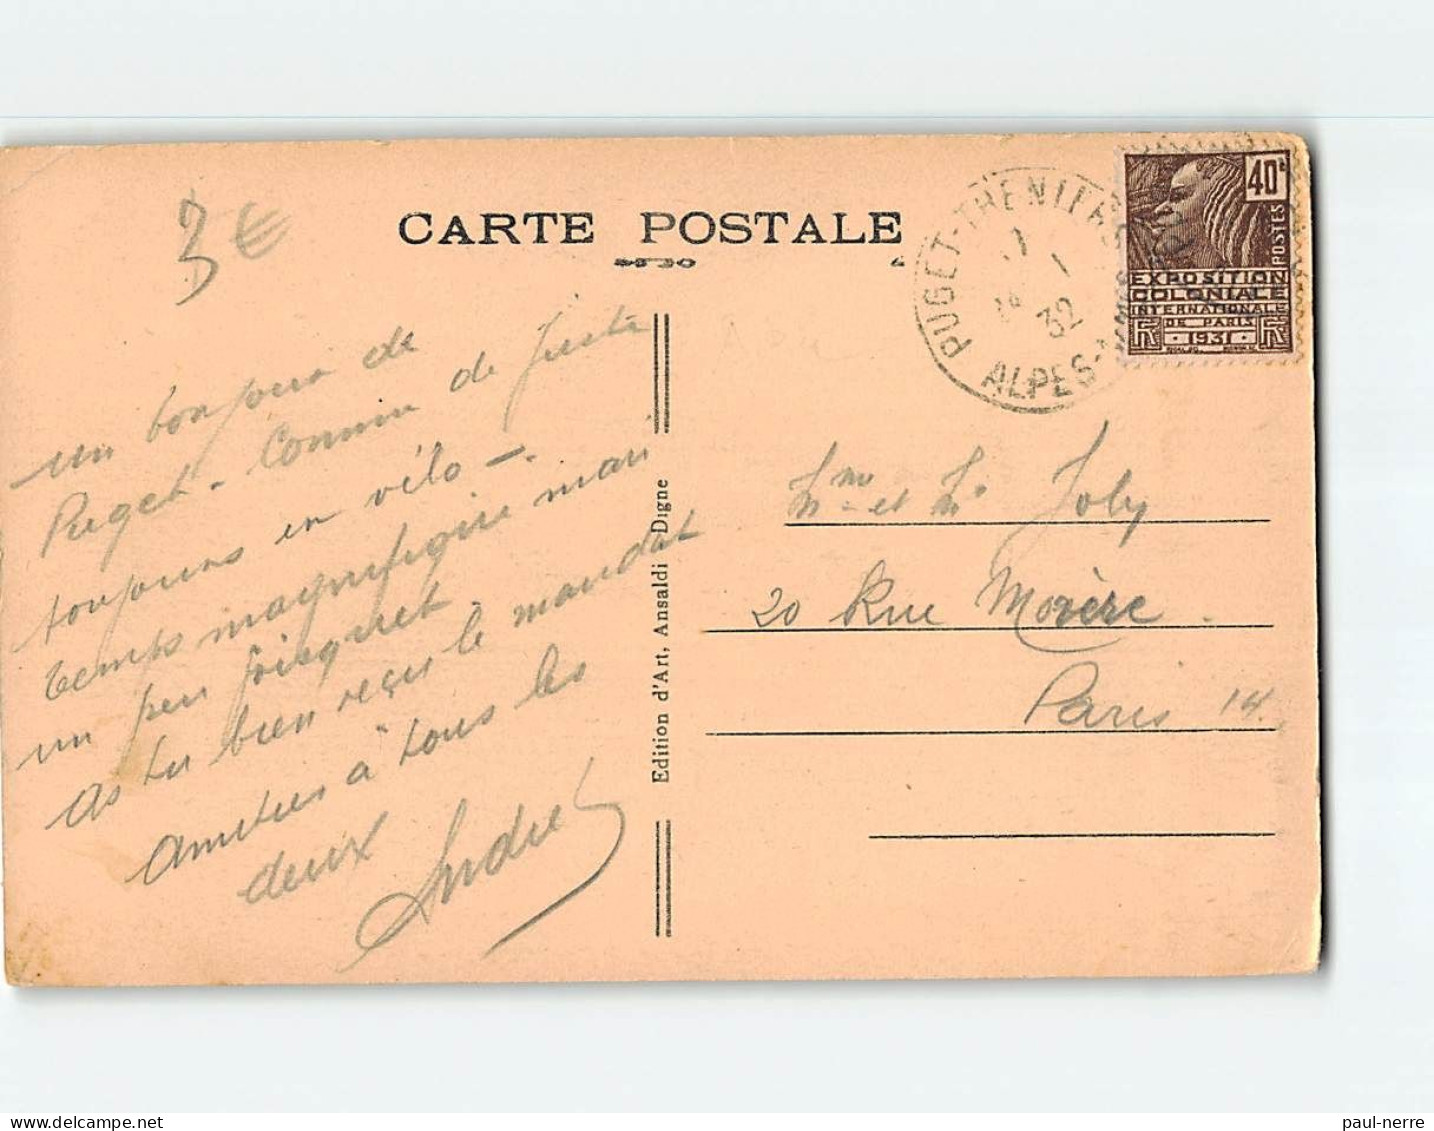 3 €
CARTE POSTALE
PUGET-THENIERS
1
32
ALPES-
40c
POSTES
EXPOSITION
COLONIALE
INTERNATIONALE
DE PARIS
RF 1931 RF
Un bonjour de
Puget - Comme de juste
toujours en vélo -
temps magnifique mais
un peu frisquet
As tu bien reçu le mandat
Amitiés à tous les
deux
André
Edition d'Art, Ansaldi - Digne
Mme et Mr Joly
20 Rue Morère
Paris 14
paul-nerre